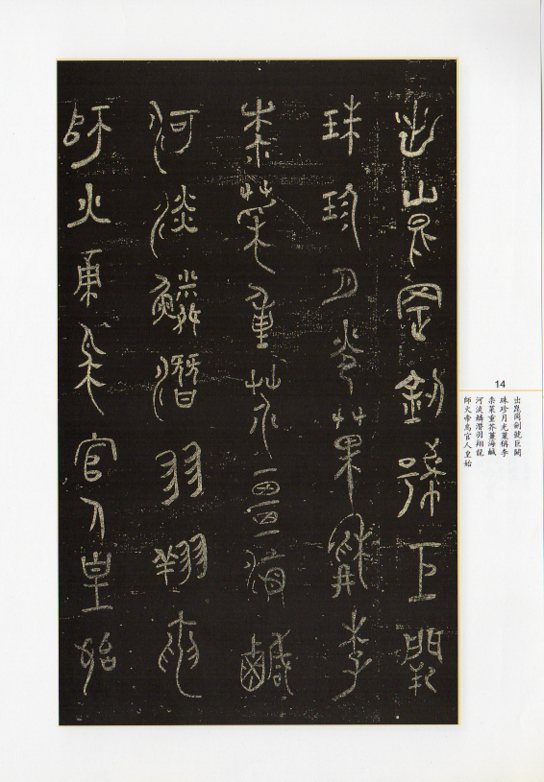 出崑岡劍號巨闕
珠珍月光菓稱李
柰菜重芥薑海鹹
河淡鱗潛羽翔龍
師火帝鳥官人皇始
14
出崑岡劍號巨闕
珠珍月光菓稱李
柰菜重芥薑海鹹
河淡鱗潛羽翔龍
師火帝鳥官人皇始